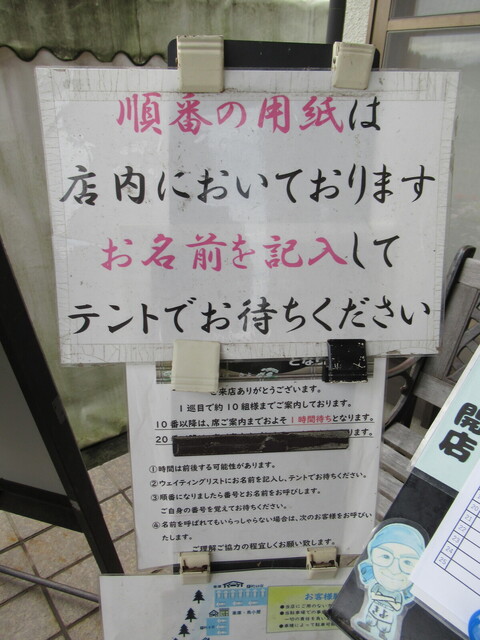 順番の用紙は
店内においております
お名前を記入して
テントでお待ちください
ご来店ありがとうございます。
1巡目で約10組様までご案内しております。
10番以降は、席ご案内までおよそ1時間待ちとなります。
①時間は前後する可能性があります。
②ウェイティングリストにお名前を記入し、テントでお待ちください。
③順番になりましたら番号とお名前をお呼びします。
ご自身の番号を覚えてお待ちください。
④名前を呼ばれてもいらっしゃらない場合は、次のお客様をお呼びい
たします。
ご理解ご協力の程宜しくお願い致します。
開店
お客様